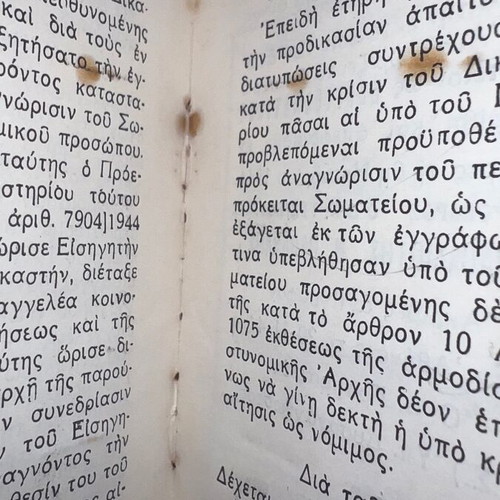 δικα-
θυνομένης
καὶ διὰ τοὺς ἐν
ξητήσατο τὴν ἐγ-
ρόντος καταστα-
γνώρισιν τοῦ Σω-
μικοῦ προσώπου.
ταύτης ὁ Πρόε-
στηρίου τούτου
ἀριθ. 7904]1944
ώρισε Εἰσηγητὴν
καστήν, διέταξε
αγγελέα κοινο-
ήσεως καὶ τῆς
ύτης ὥρισε δι-
ρχῇ τῆς παρού-
ν συνεδρίασιν
ν τοῦ Εἰσηγη-
αγνόντος τὴν
θεσίν του τοῦ
ς αἰ-
Ἐπειδὴ ἐτήρη
τὴν προδικασίαν ἀπαιτο
διατυπώσεις συντρέχουσ
κατὰ τὴν κρίσιν τοῦ Δικ
ρίου πᾶσαι αἱ ὑπὸ τοῦ
προβλεπόμεναι προϋποθέ
πρὸς ἀναγνώρισιν τοῦ πε
πρόκειται Σωματείου, ὡς
ἐξάγεται ἐκ τῶν ἐγγράφω
τινα ὑπεβλήθησαν ὑπὸ τοῦ
ματείου προσαγομένης δὲ
τῆς κατὰ τὸ ἄρθρον 10
1075 ἐκθέσεως τῆς ἁρμοδία
στυνομικῆς Ἀρχῆς δέον ἑπ
νως νὰ γίνῃ δεκτὴ ἡ ὑπὸ κ
αἴτησις ὡς νόμιμος.
Διὰ
Δέχεται